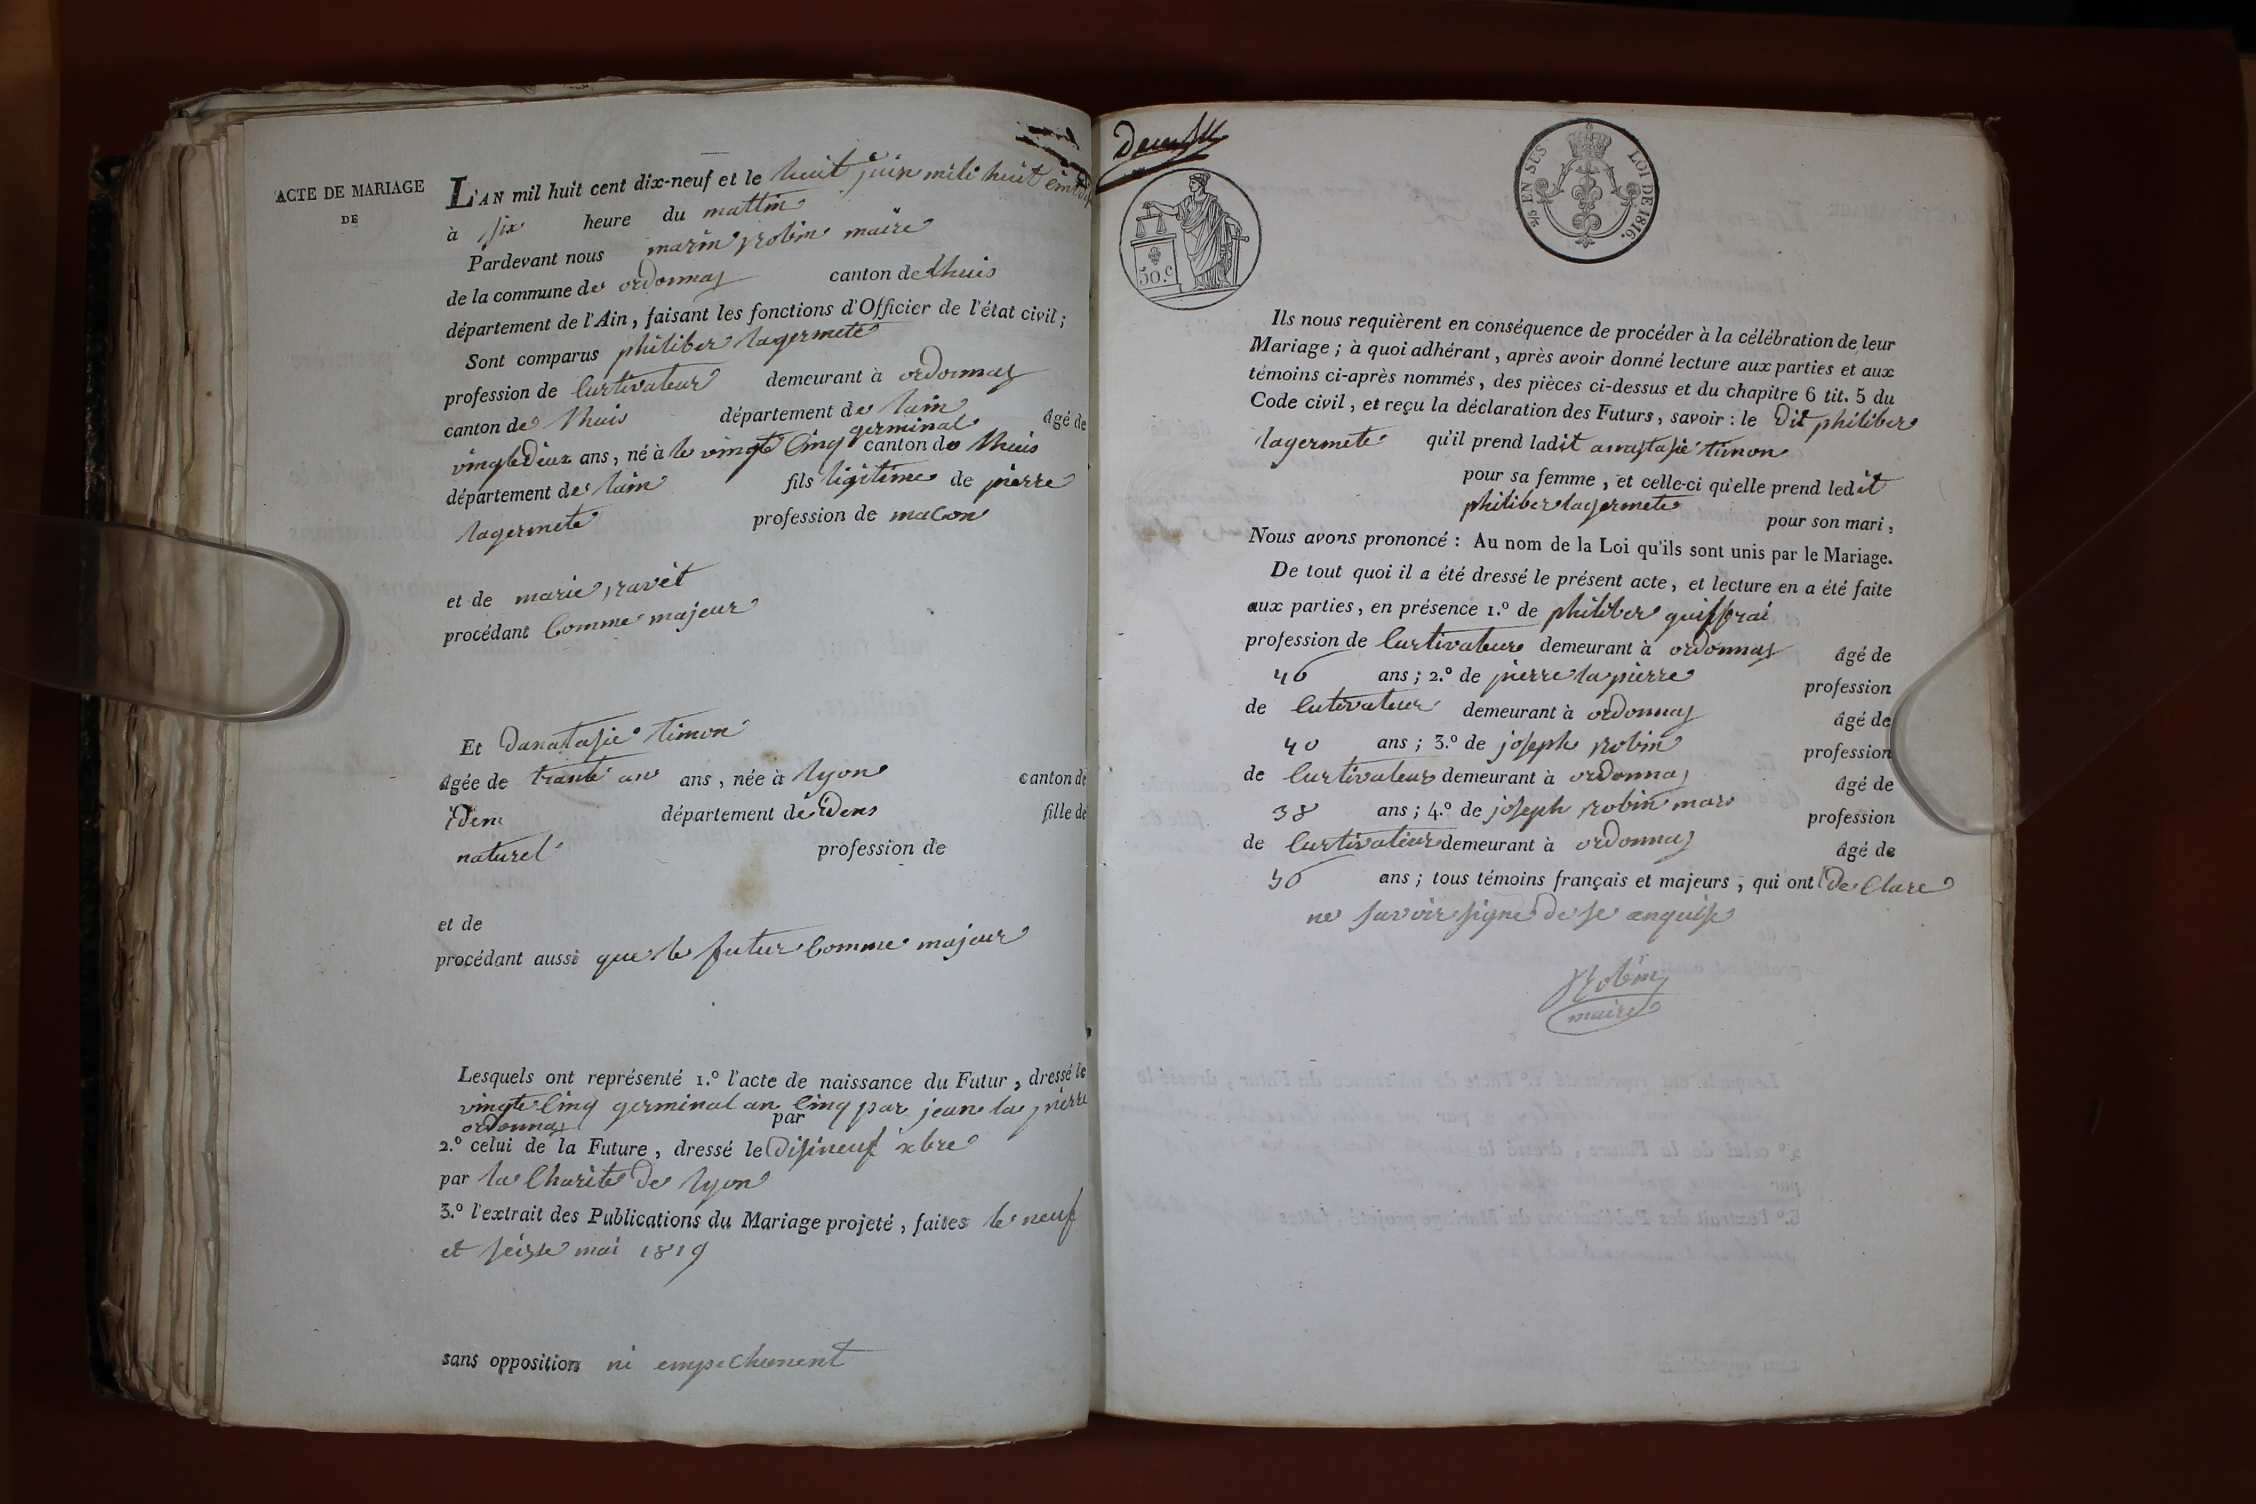 ACTE DE MARIAGE
DE
L'AN mil huit cent dix-neuf et le huit juin mile huit
à six heure du mattin
Pardevant nous marin robin maire
de la commune de ordonnas canton de lhuis
département de l'Ain, faisant les fonctions d'Officier de l'état civil;
Sont comparus philiber lagermete
profession de curtivateur demeurant à ordonnas
canton de lhuis département de lain âgé de
germinal
vingtedeux ans, né à le vingte cinq canton de lhuis
département de lain fils ligitime de pierre
lagermete profession de macon
et de marie ravet
procédant comme majeur
Et danatasie timon
âgée de trante un ans, née à lyon canton de
idem département de idem fille de
naturel profession de
et de
procédant aussi que le futur comme majeur
Lesquels ont représenté 1.º l'acte de naissance du Futur, dressé le
vingte cinq germinal an cinq par jean la pierre
ordonnas par
2.º celui de la Future, dressé le disineuf xbre
par la charite de lyon
3.º l'extrait des Publications du Mariage projeté, faites le neuf
et seisse mai 1819
sans opposition ni empechement
EN SUS
LOI DE 1816.
50.c
Ils nous requièrent en conséquence de procéder à la célébration de leur
Mariage; à quoi adhérant, après avoir donné lecture aux parties et aux
témoins ci-après nommés, des pièces ci-dessus et du chapitre 6 tit. 5 du
Code civil, et reçu la déclaration des Futurs, savoir: le dit philiber
lagermete qu'il prend ladit anastasie timon
pour sa femme, et celle-ci qu'elle prend ledit
philiber lagermete pour son mari,
Nous avons prononcé: Au nom de la Loi qu'ils sont unis par le Mariage.
De tout quoi il a été dressé le présent acte, et lecture en a été faite
aux parties, en présence 1.º de philiber guiffrai
profession de curtivateur demeurant à ordonnas âgé de
46 ans; 2.º de pierre la pierre profession
de cutivateur demeurant à ordonnas âgé de
40 ans; 3.º de joseph robin profession
de curtivateur demeurant à ordonnas âgé de
38 ans; 4.º de joseph robin profession
de curtivateur demeurant à ordonnas âgé de
ans; tous témoins français et majeurs, qui ont de clare
ne savoir signe de se anquise
Robin
maire